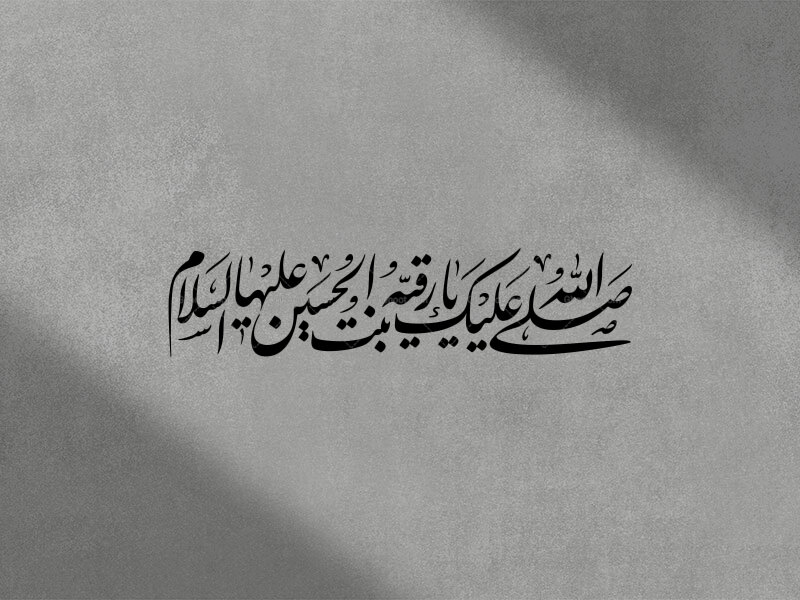 صلی الله علیک یا رقیه بنت الحسین علیها السلام